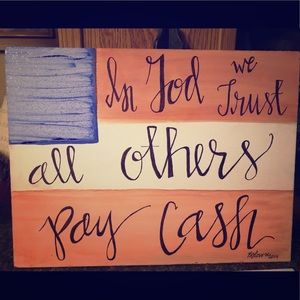 In God we Trust
all others
pay Cash